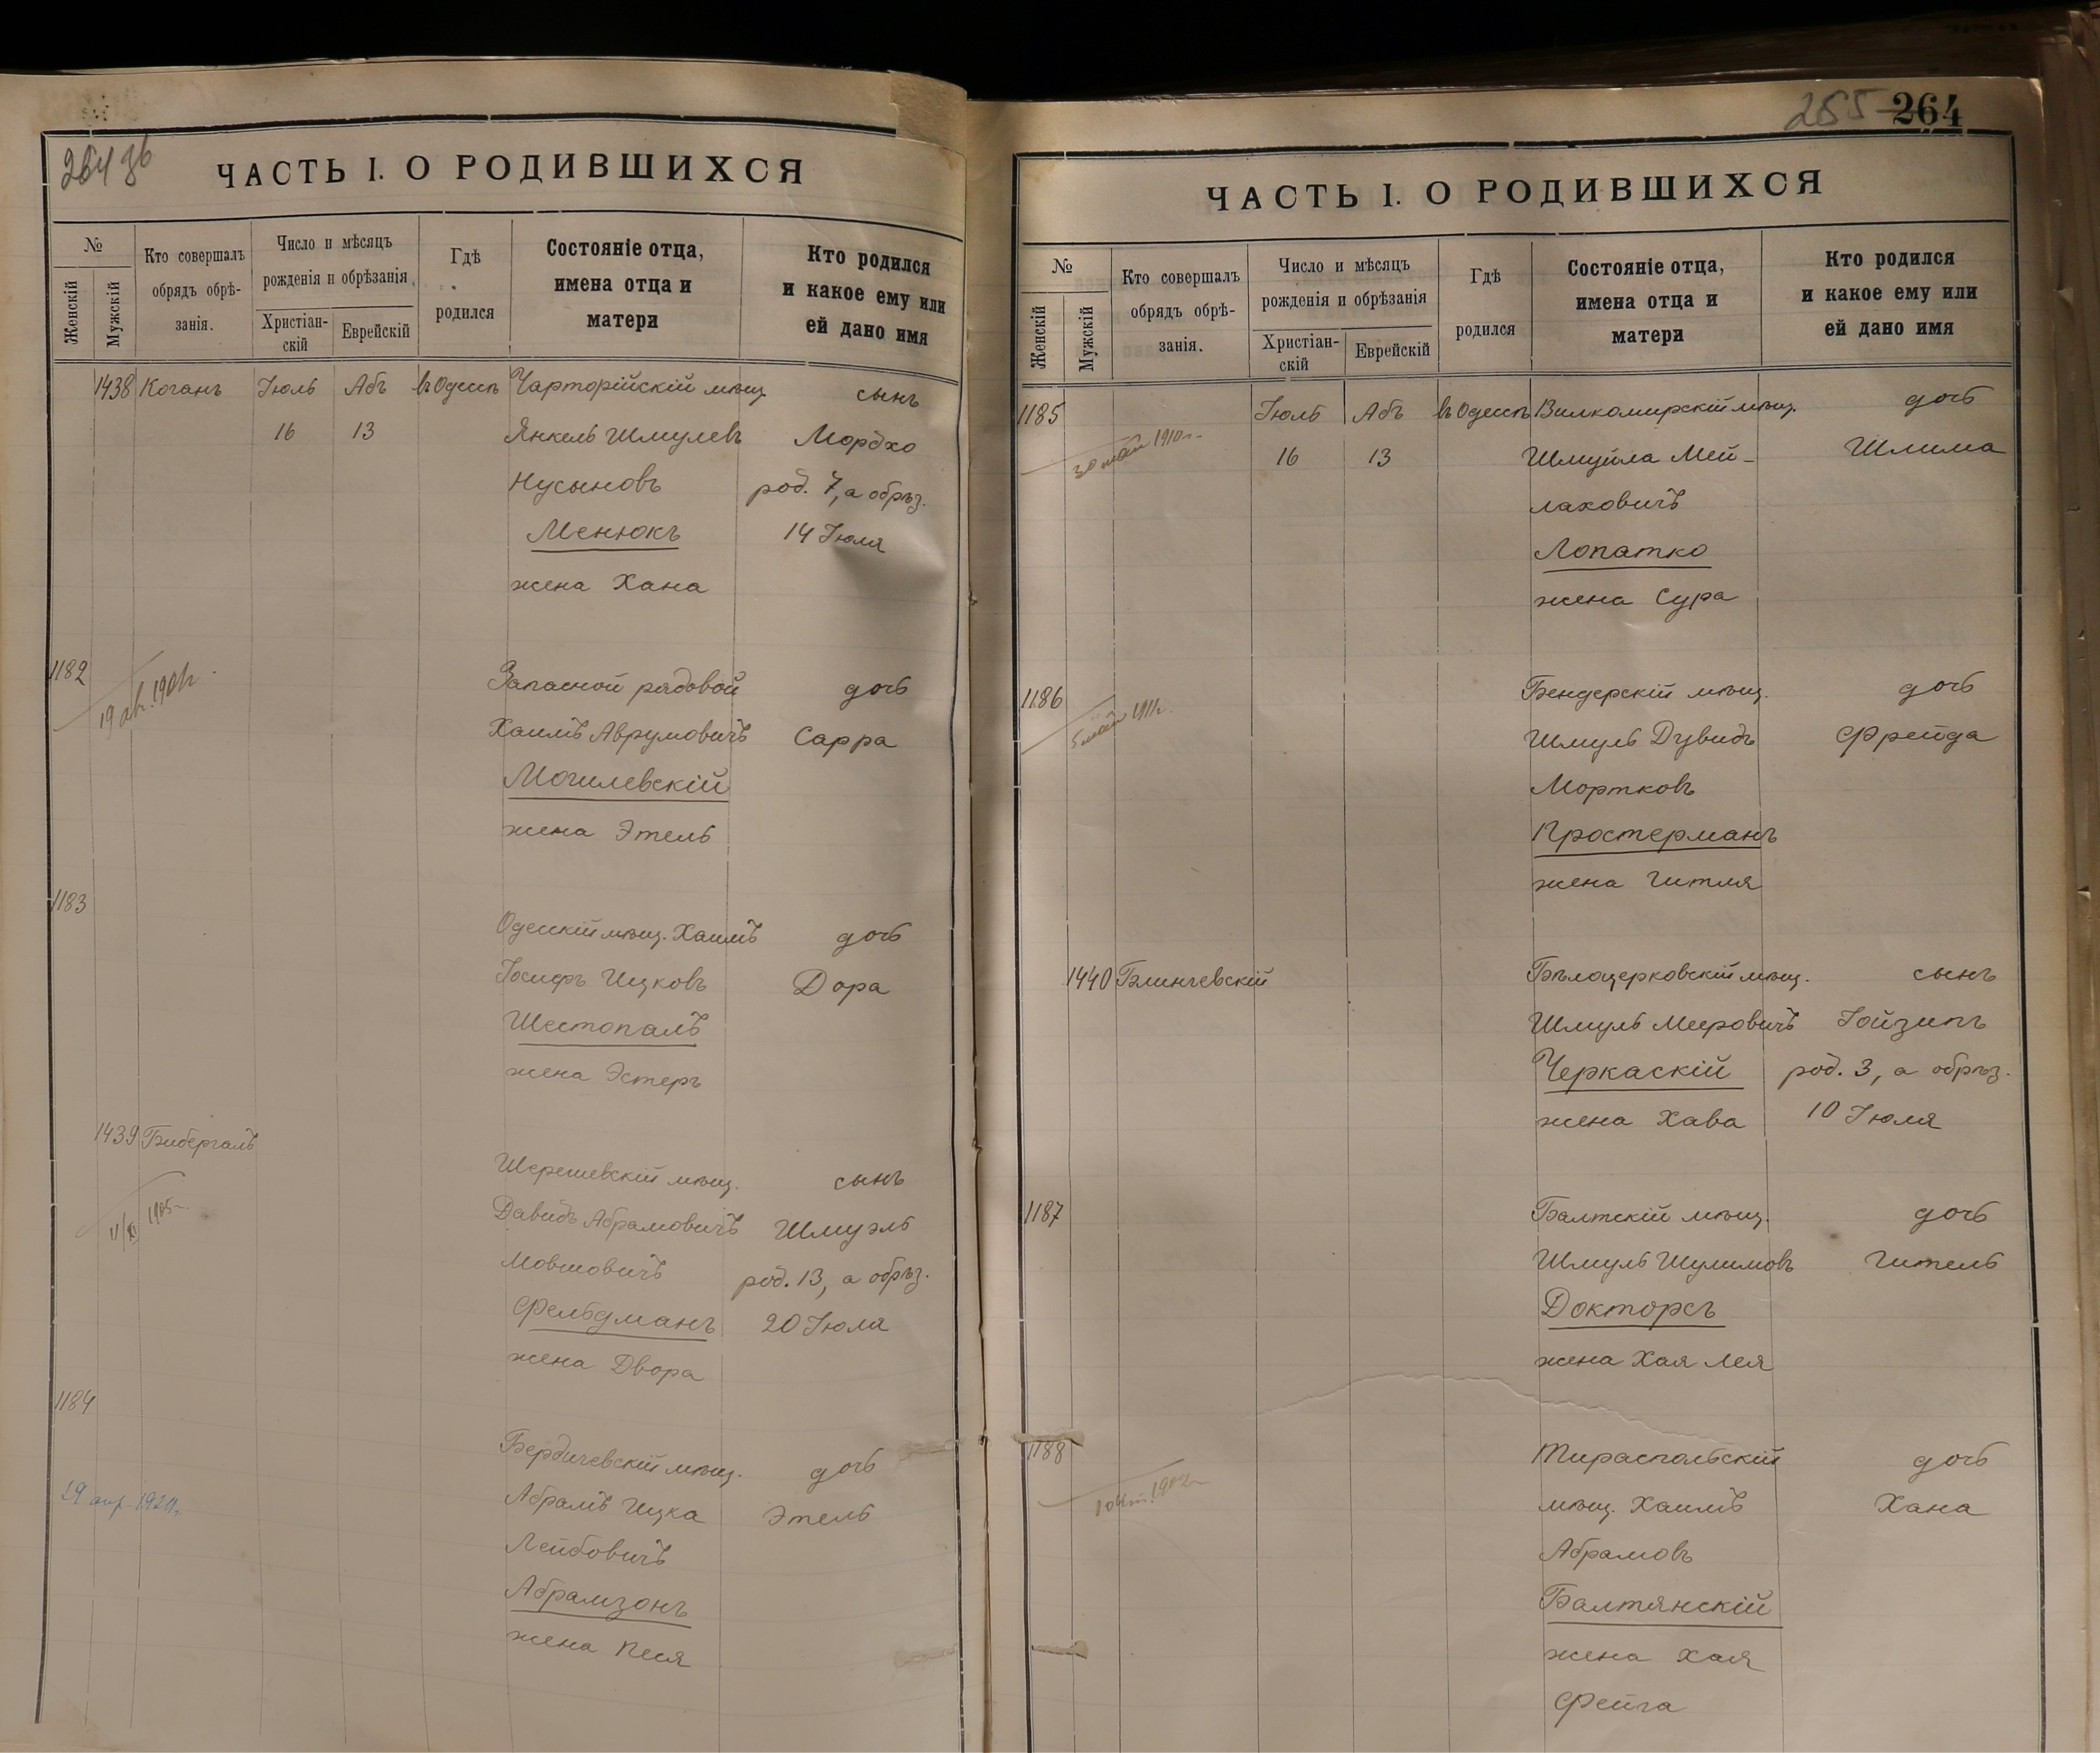 264 зб
ЧАСТЬ I. О РОДИВШИХСЯ
№
Женскій
Мужскій
Кто совершалъ
обрядъ обрѣ-
занія.
Число и мѣсяцъ
рожденія и обрѣзанія
Христіан-
скій
Еврейскій
Гдѣ
родился
Состояніе отца,
имена отца и
матери
Кто родился
и какое ему или
ей дано имя
1438 Коганъ Іюль Абъ въ Одессѣ Чарторійскій мѣщ. сынъ
16 13 Янкель Шмулевъ Мордхо
Нусыновъ род. 7, а обрѣз.
Менюкъ 14 Іюля
жена Хана
1182 Запасной рядовой дочь
19 ав. 1901г.
Хаимъ Аврумовичъ Сарра
Могилевскій
жена Этель
1183
Одесскій мѣщ. Хаимъ дочь
Іосифъ Ицковъ Дора
Шестопалъ
жена Эстеръ
1439 Бибергалъ
Шерешевскій мѣщ. сынъ
11/XI 1905г.
Давидъ Абрамовичъ Шмуэль
Мовшовичъ род. 13, а обрѣз.
Фельдманъ 20 Іюля
жена Двора
1184
Бердичевскій мѣщ. дочь
29 апр. 1921г.
Абрамъ Ицка Этель
Лейбовичъ
Абрамзонъ
жена Песя
255 264
ЧАСТЬ I. О РОДИВШИХСЯ
№
Женскій
Мужскій
Кто совершалъ
обрядъ обрѣ-
занія.
Число и мѣсяцъ
рожденія и обрѣзанія
Христіан-
скій
Еврейскій
Гдѣ
родился
Состояніе отца,
имена отца и
матери
Кто родился
и какое ему или
ей дано имя
1185 Іюль Абъ въ Одессѣ Вилкомирскій мѣщ. дочь
30 май 1910г.
16 13 Шмуйла Мей- Шлима
лаховичъ
Лопатко
жена Сура
1186 Бендерскій мѣщ. дочь
5 май 1911г.
Шмуль Дувидъ Фрейда
Мортковъ
Простерманъ
жена Гитля
1440 Блинчевскій Бѣлоцерковскій мѣщ. сынъ
Шмуль Мееровичъ Іойзипъ
Черкаскій род. 3, а обрѣз.
жена Хава 10 Іюля
1187 Балтскій мѣщ. дочь
Шмуль Шулимовъ Гитель
Докторъ
жена Хая Лея
1188 Тираспольскій дочь
1 окт. 1902г.
мѣщ. Хаимъ Хана
Абрамовъ
Балтянскій
жена Хая
Фейга